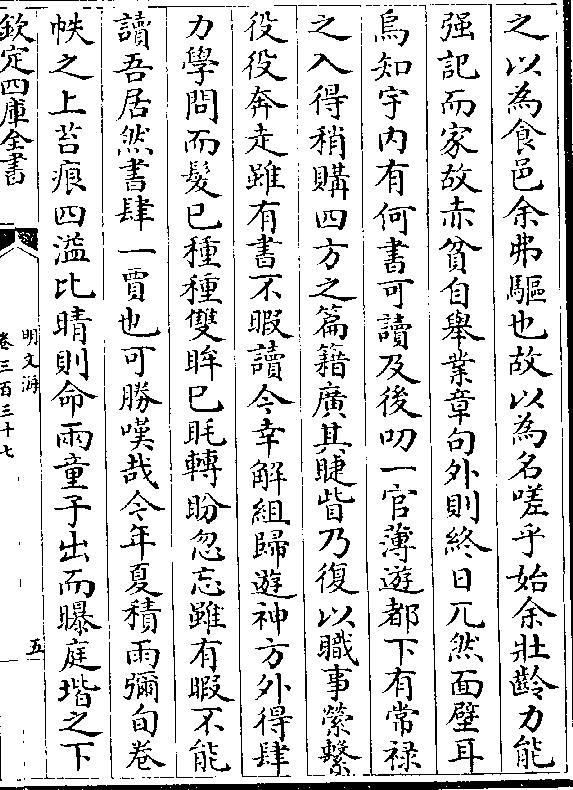 之以為食邑余弗驅也故以為名嗟乎始余壯齡力能
强記而家故赤貧自舉業章句外則終日兀然面壁耳
烏知宇内有何書可讀及後叨一官薄遊都下有常禄
之入得稍購四方之篇籍廣其睫眥乃復以職事縈繫
役役奔走雖有書不暇讀今幸解組歸遊神方外得肆
力學問而髮已種種雙眸已眊轉盼忽忘雖有暇不能
讀吾居然書肆一賈也可勝嘆哉今年夏積雨彌旬卷
帙之上苔痕四溢比晴則命兩童子出而曝庭堦之下
欽定四庫全書
明文海
卷三百三十七
五